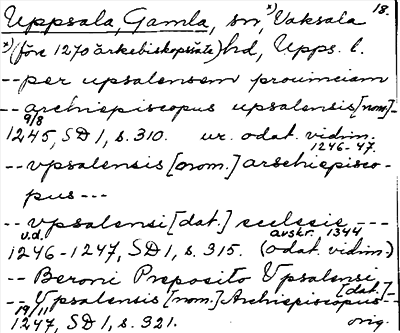 Uppsala, Gamla, sn,*) Vaksala 18.
*) (före 1270 ärkebiskopssäte) hd, Upps. l.
-- per upsalensem prouinciam
-- archiepiscopus upsalensis [nom] -
9/8 1245, SD 1, s. 310. ur odat. vidim. 1246-47.
-- vpsalensis [nom.] archiepisco-
pus ---
-- vpsalensi [dat.] ecclesie ---
u.d. 1246-1247, SD 1, s. 315. (odat. vidim.) avskr. 1344
-- Beroni Preposito Vpsalensi [dat.] -
-- Vpsalensis [nom.] Archiepiscopus --
19/11 1247, SD 1, s. 321. orig.